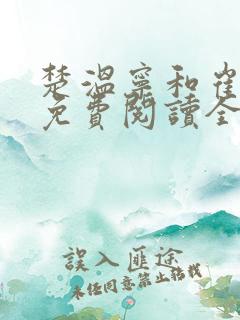 楚溫寧和崔
免費閱讀全
誤入匪途
未经同意禁止转载